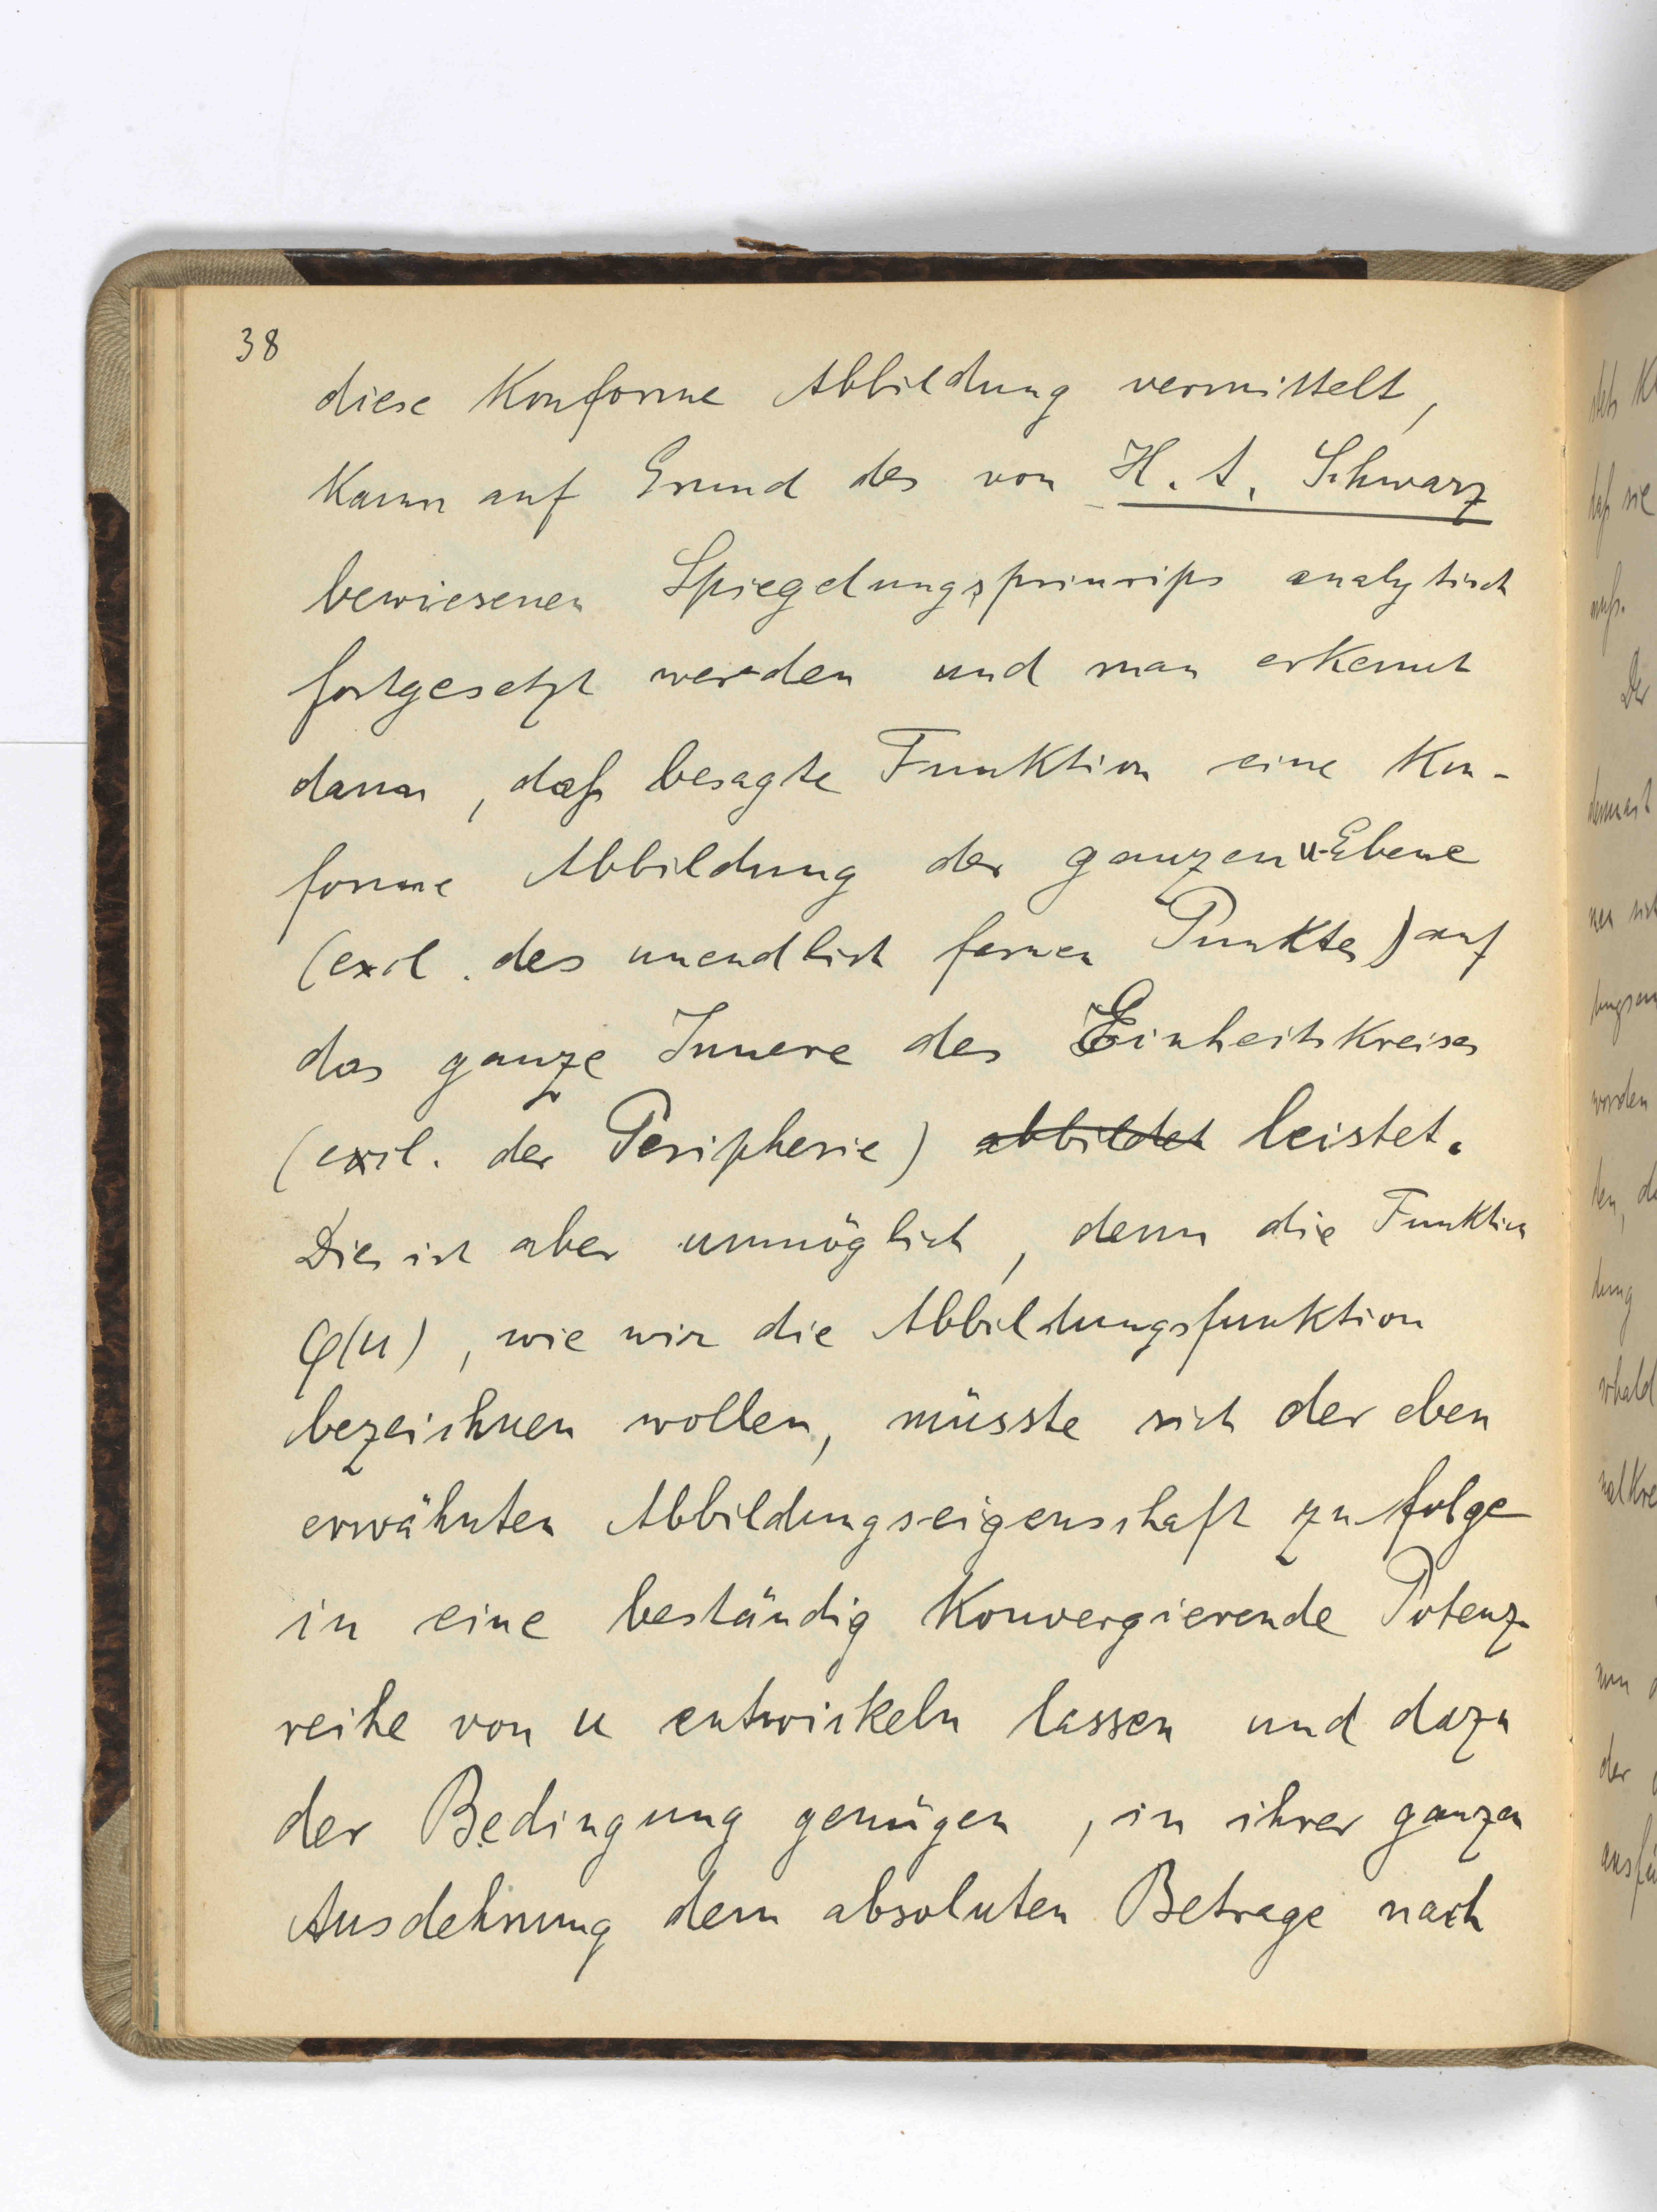 38
diese konforme Abbildung vermittelt,
kann auf Grund des von H. A. Schwarz
bewiesenen Spiegelungsprinzips analytisch
fortgesetzt werden und man erkennt
dann, daß besagte Funktion eine kon-
forme Abbildung der ganzen u-Ebene
(excl. des unendlich fernen Punktes) auf
das ganze Innere des Einheitskreises
(excl. der Peripherie) abbildet leistet.
Dies ist aber unmöglich, denn die Funktion
φ(u), wie wir die Abbildungsfunktion
bezeichnen wollen, müsste sich der eben
erwähnten Abbildungseigenschaft zufolge
in eine beständig konvergierende Potenz-
reihe von u entwickeln lassen und dazu
der Bedingung genügen, in ihrer ganzen
Ausdehnung dem absoluten Betrage nach